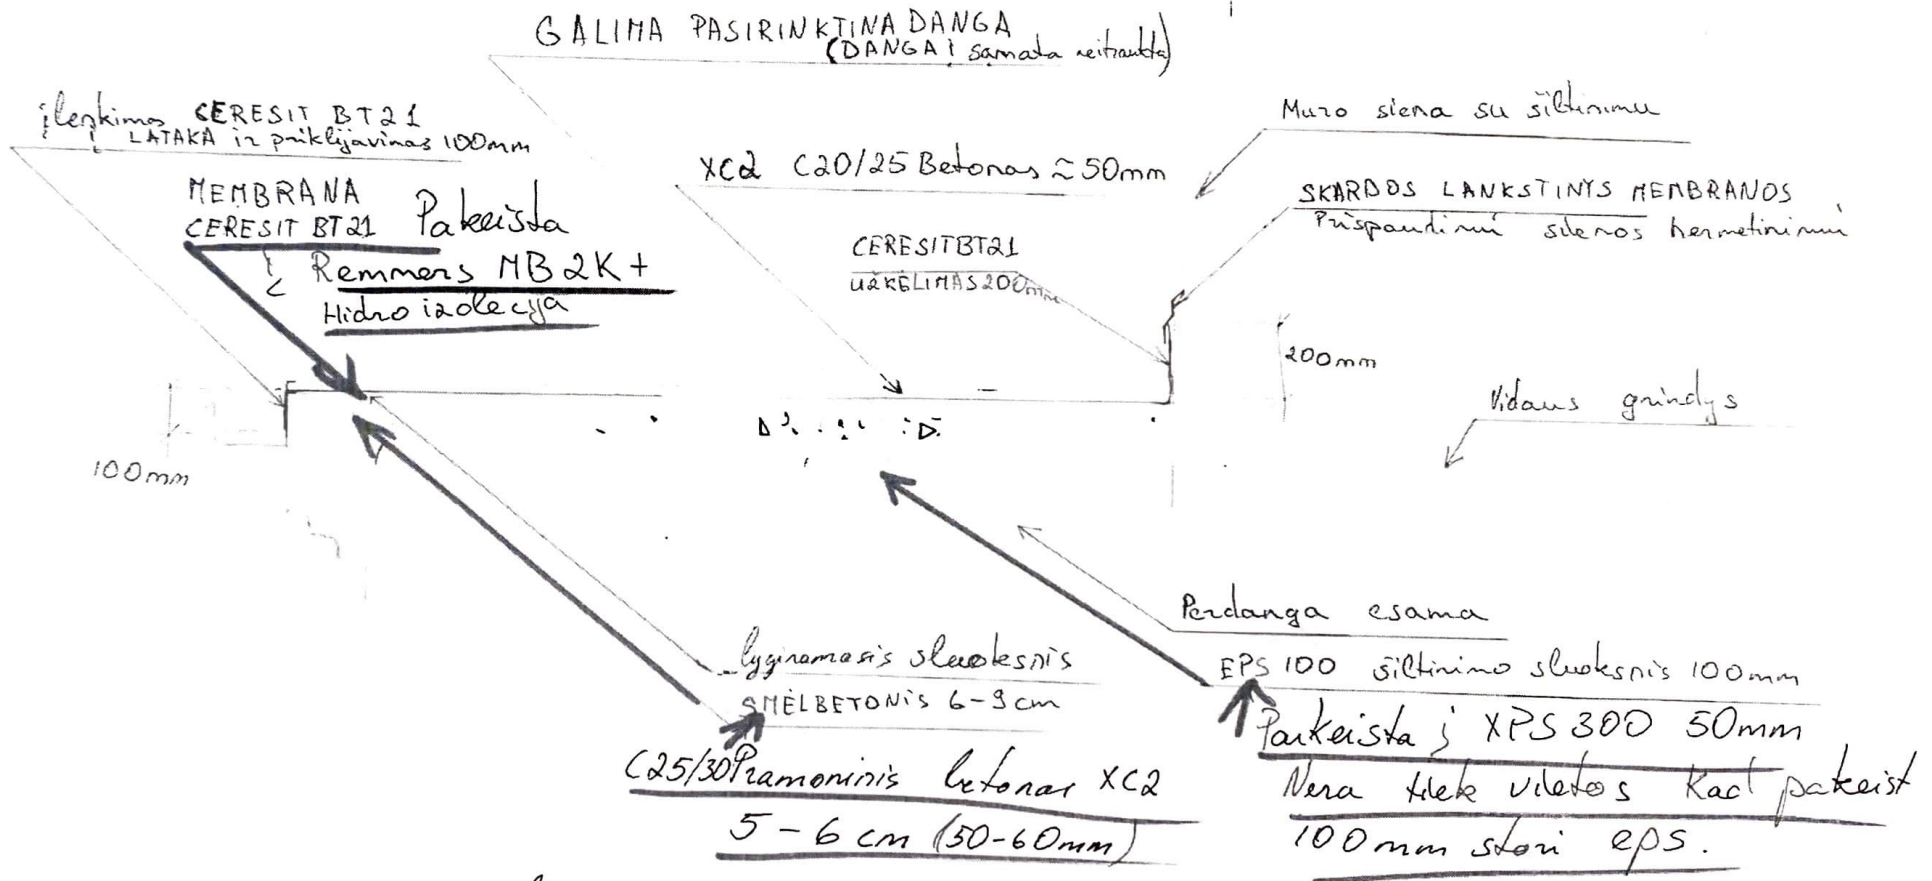 GALIMA PASIRINKTINA DANGA
(DANGA Į samata neitraukta)
įlenkimas CERESIT BT21
Į LATAKA ir priklijavimas 100mm
MEMBRANA
CERESIT BT21 Pakeista
į Remmers MB 2K +
Hidroizolecija
XC2 C20/25 Betonas ≈ 50mm
CERESIT BT21
UŽKĖLIMAS 200mm
Muro siena su šiltinimu
SKARDOS LANKSTINYS MEMBRANOS
Prispaudimui sienos hermetinimui
200mm
Vidaus grindys
100mm
Perdanga esama
lyginamasis sluoksnis
SMĖLBETONIS 6-9 cm
C25/30 Pramoninis betonas XC2
5-6 cm (50-60mm)
EPS 100 šiltinimo sluoksnis 100mm
Parkeista į XPS 300 50mm
Nera tiek vietos Kad pakeist
100mm stori eps.